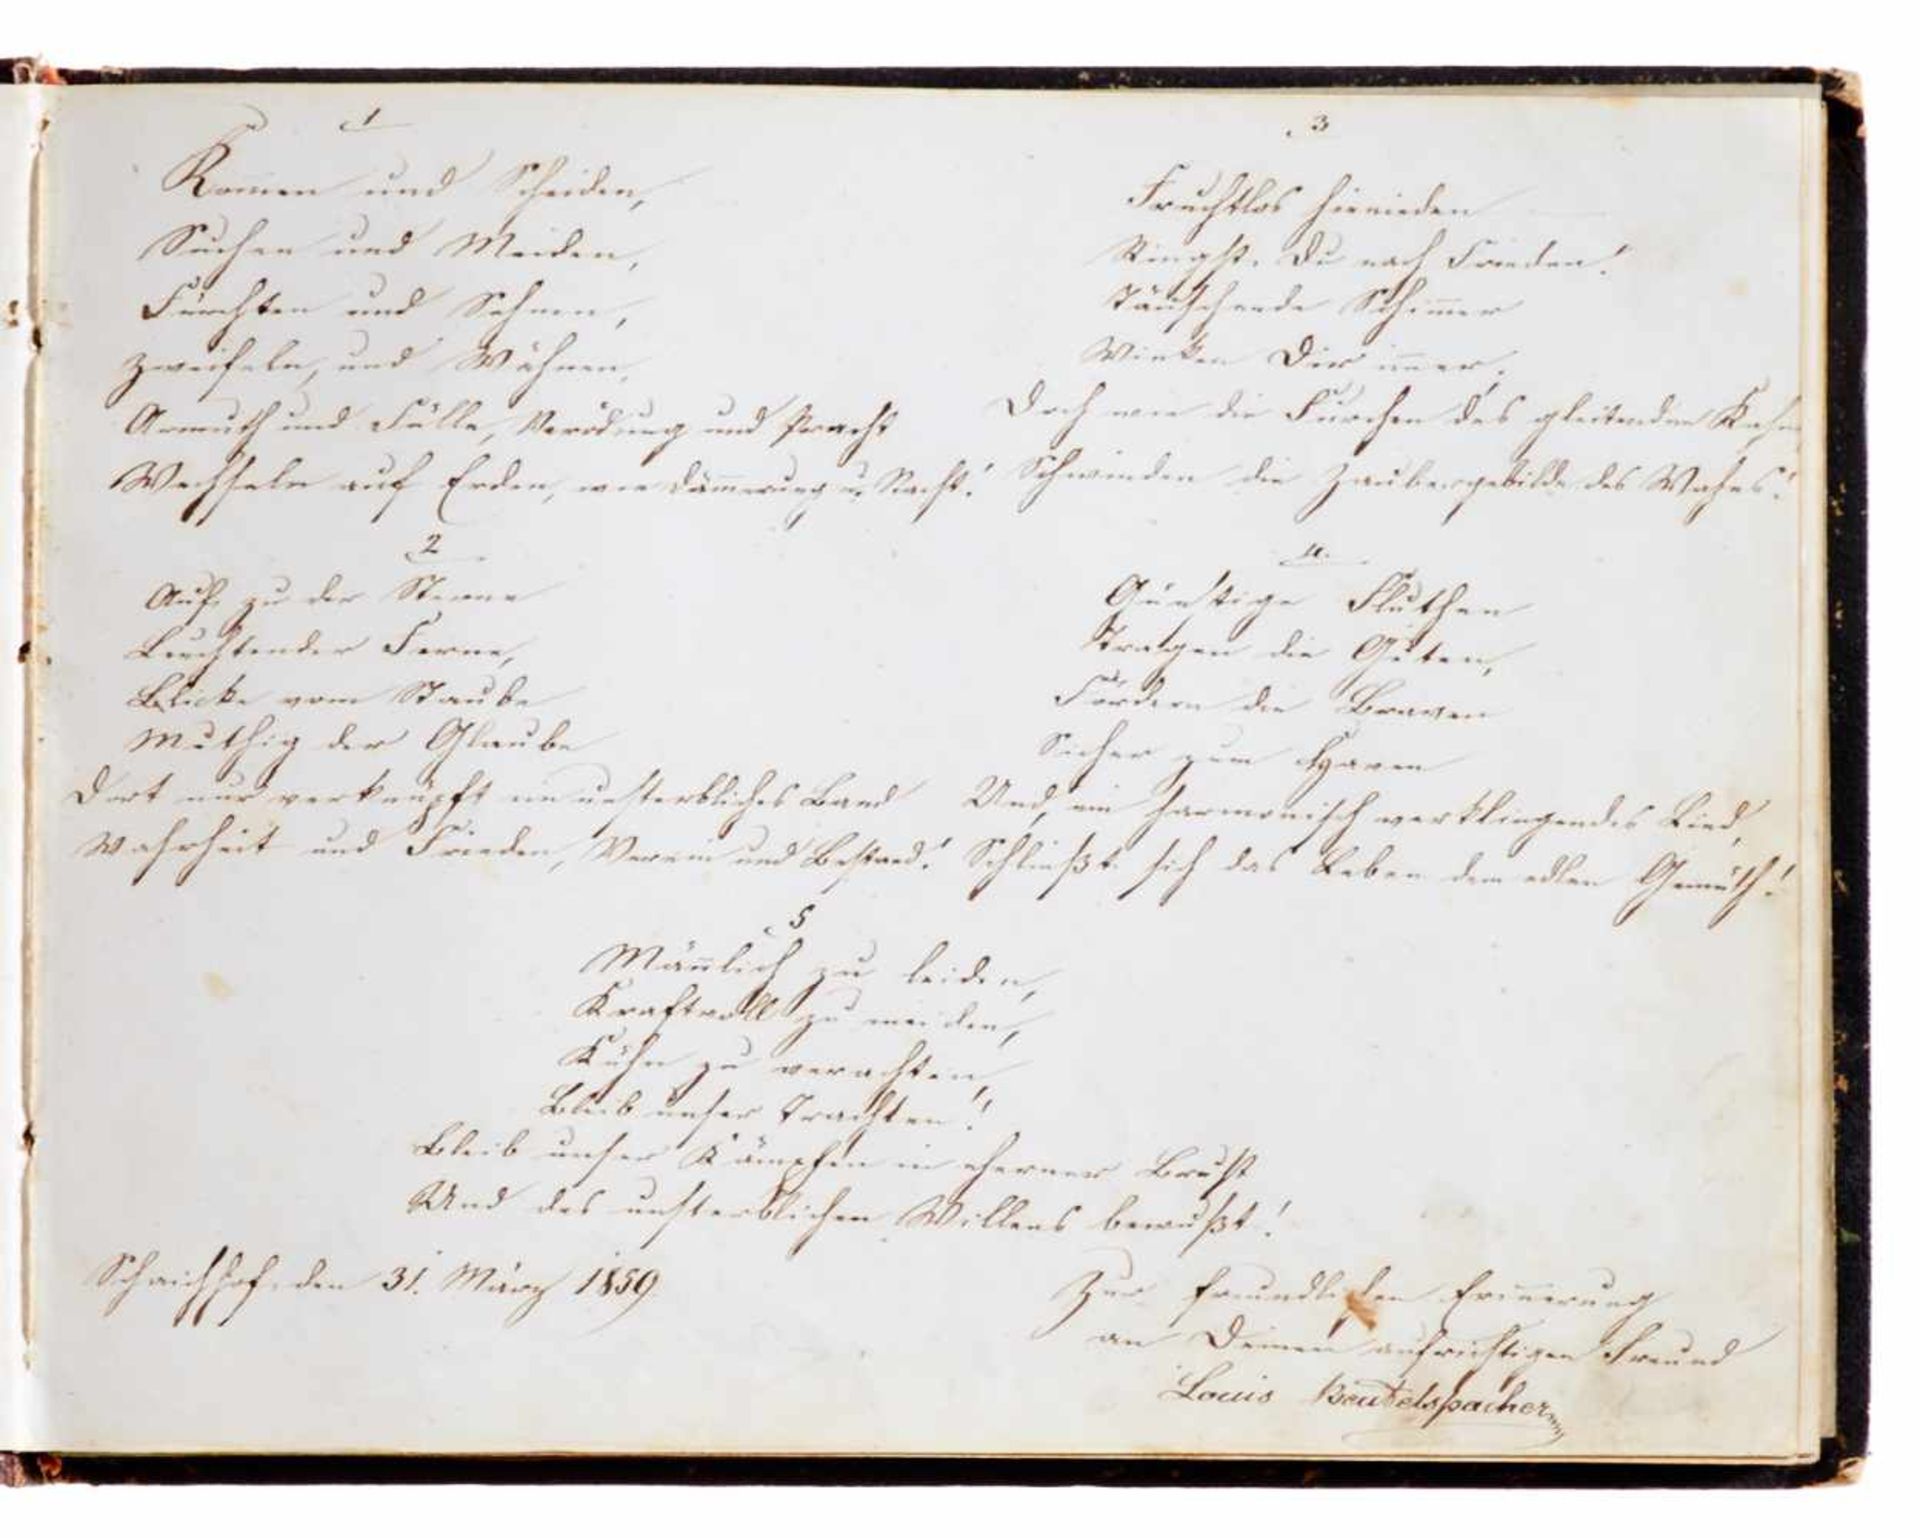 1
Kom̄en und Scheiden,
Suchen und Meiden,
Fürchten und Sehnen,
Zweifeln, und Wähnen,
Armuth und Fülle, Verödung und Pracht
Wechseln auf Erden, wie Däm̄erung u. Nacht!
2
Auf, zu der Sterne
Leuchtender Ferne,
Blicke vom Staube
Muthig der Glaube
Dort nur verknüpft ein unsterbliches Band
Wahrheit und Frieden, Verein und Bestand!
3
Fruchtlos hienieden
Ringst Du nach Frieden!
Täuschende Schim̄er
Winken Dir im̄er;
Doch wie die Furchen des gleitenden Kahns
Schwinden die Zaubergebilde des Wahns!
4.
Günstige Fluthen
Tragen die Guten,
Fördern die Braven
Sicher zum Haven
Und, ein harmonisch verklingendes Lied,
Schließt sich das Leben dem edlen Gemüth!
5
Män̄lich zu leiden,
Kraftvoll zu meiden,
Kühn zu verachten,
Bleib unser Trachten!
Bleib unser Kämpfen in eherner Brust
Und des unsterblichen Willens bewußt!
Schaichhof, den 31. März 1859
Zur freundlichen Erin̄erung
an Deinen aufrichtigen Freund
Louis Beutelspacher